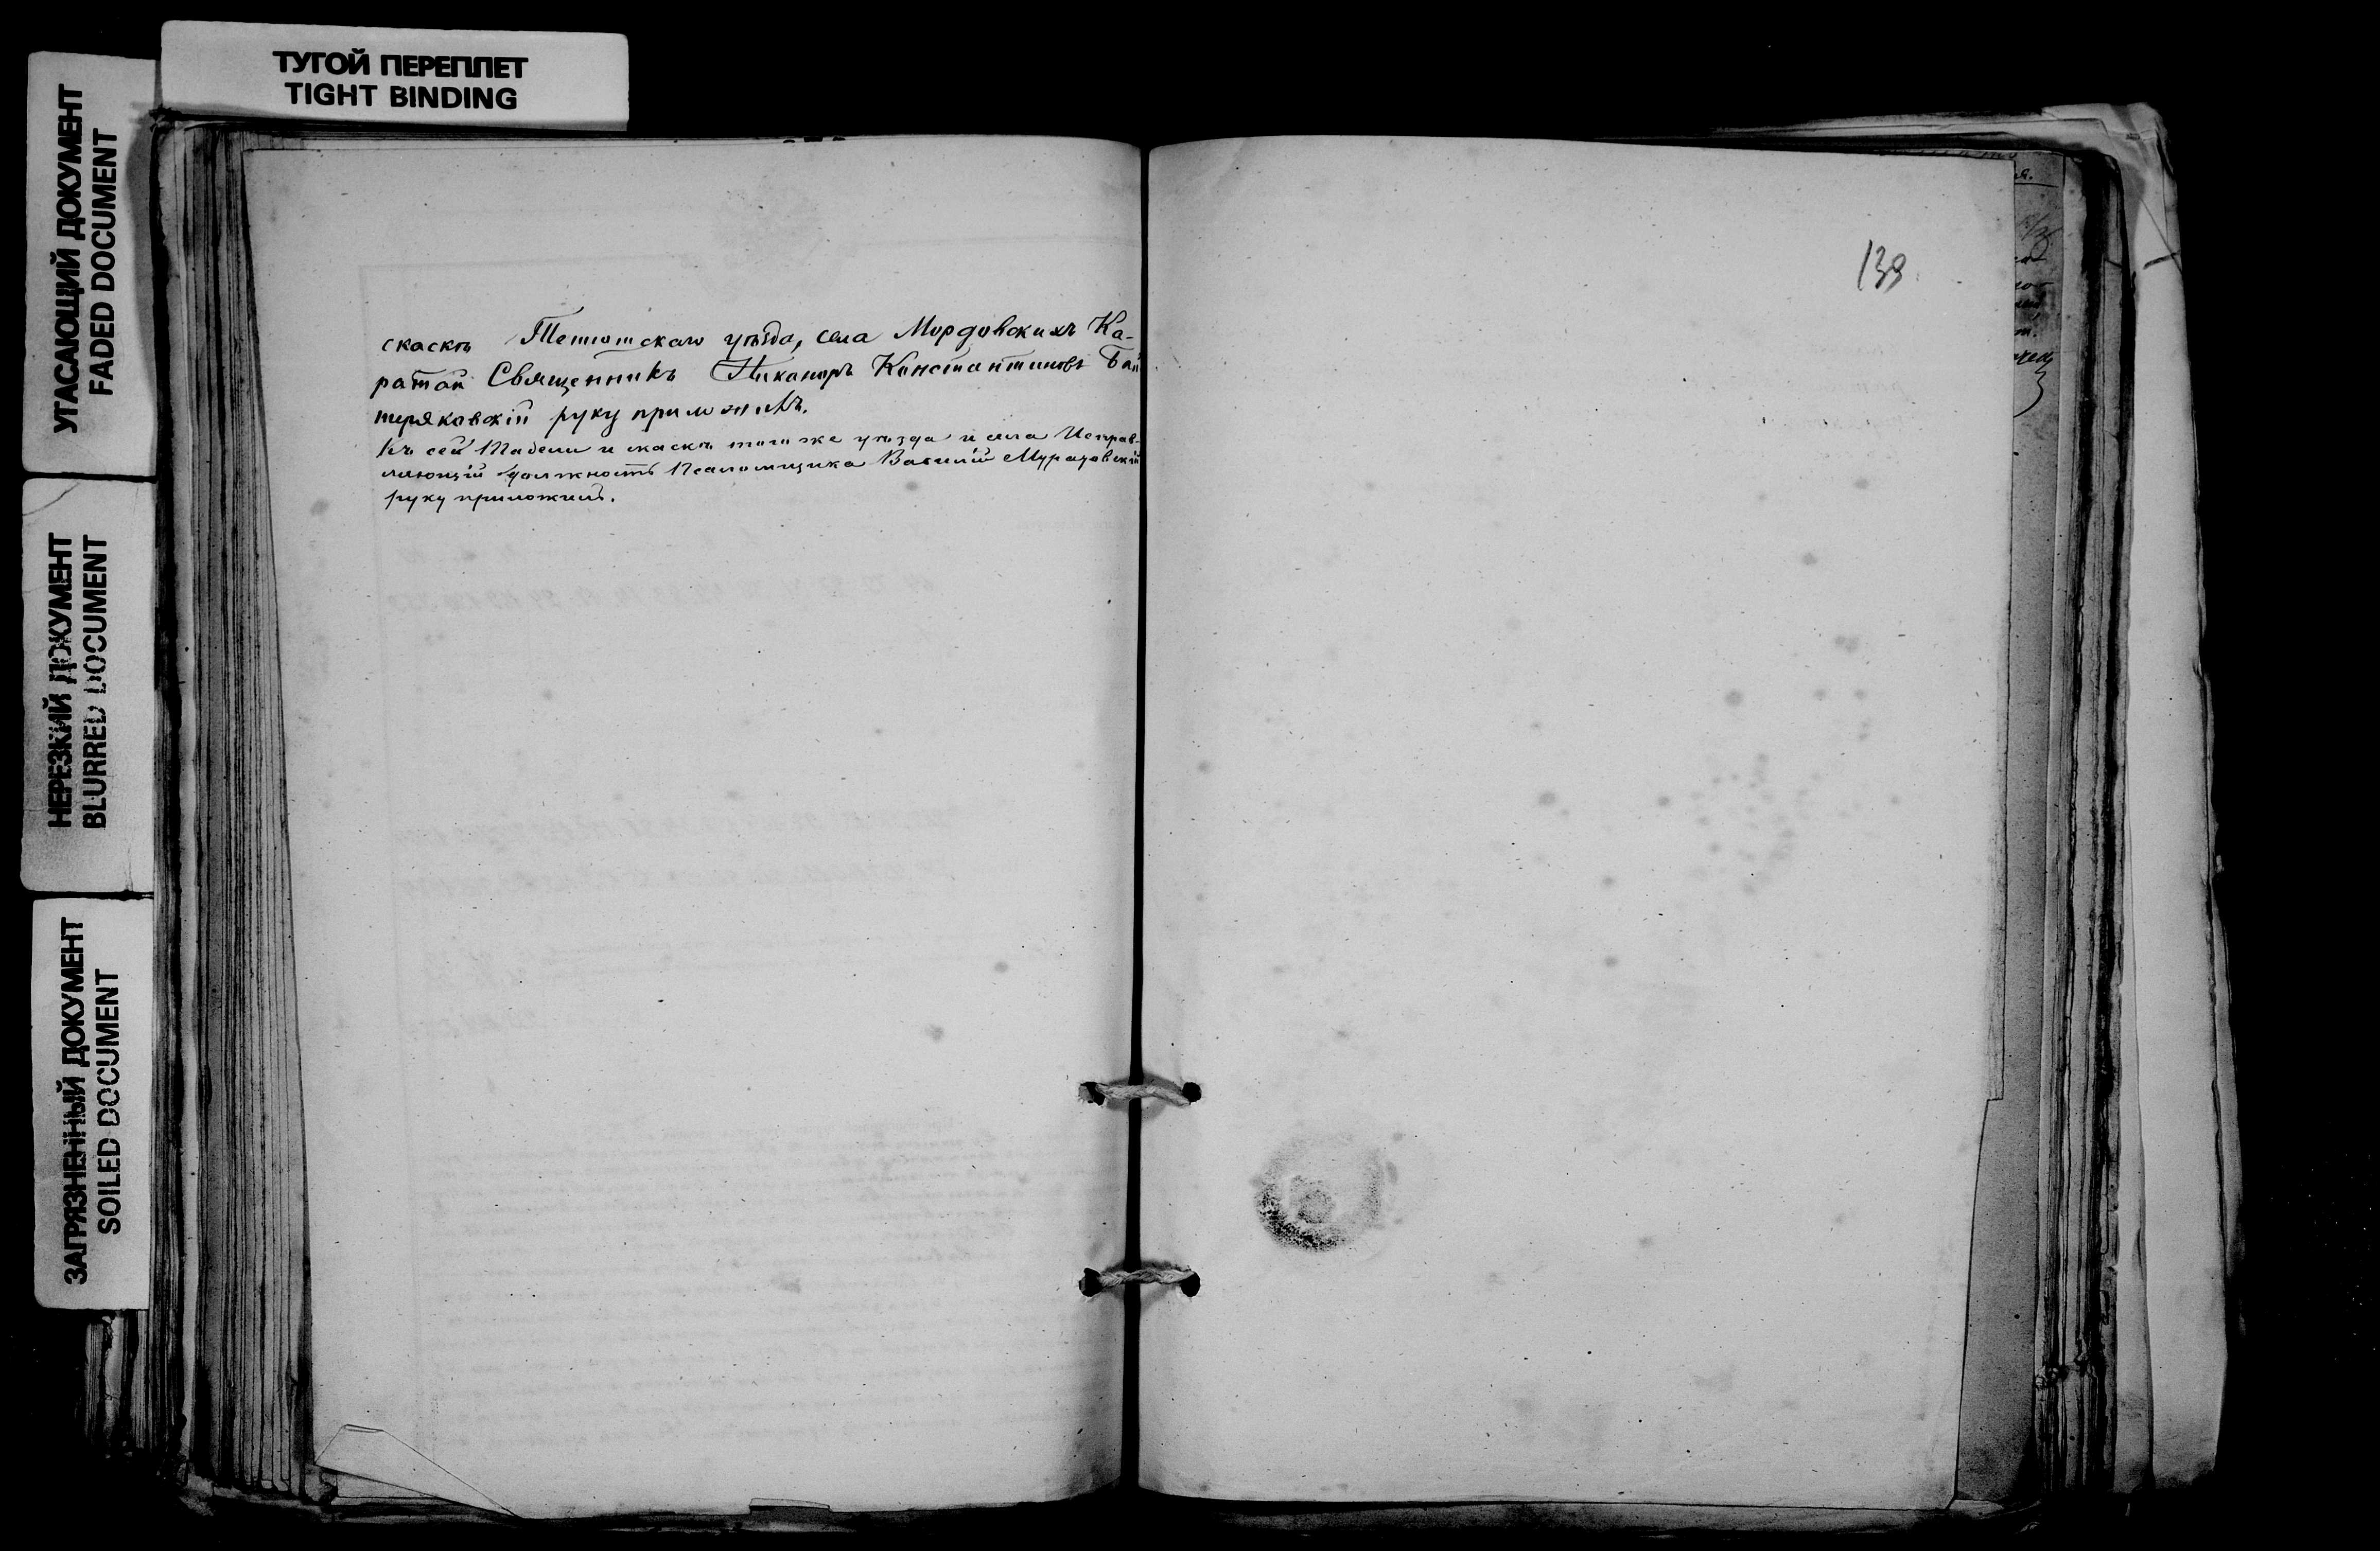 ТУГОЙ ПЕРЕПЛЕТ
TIGHT BINDING
УГАСАЮЩИЙ ДОКУМЕНТ
FADED DOCUMENT
НЕРЕЗКИЙ ДОКУМЕНТ
BLURRED DOCUMENT
ЗАГРЯЗНЕННЫЙ ДОКУМЕНТ
SOILED DOCUMENT
скаскѣ Тетюшскаго уѣзда, села Мордовскихъ Ка-
ратай Священникъ Никаноръ Константиновъ Бай
теряковскій руку приложилъ.
Къ сей Табели и скаскѣ того же уѣзда и села Исправ-
ляющій должность Псаломщика Василій
руку приложилъ.
139